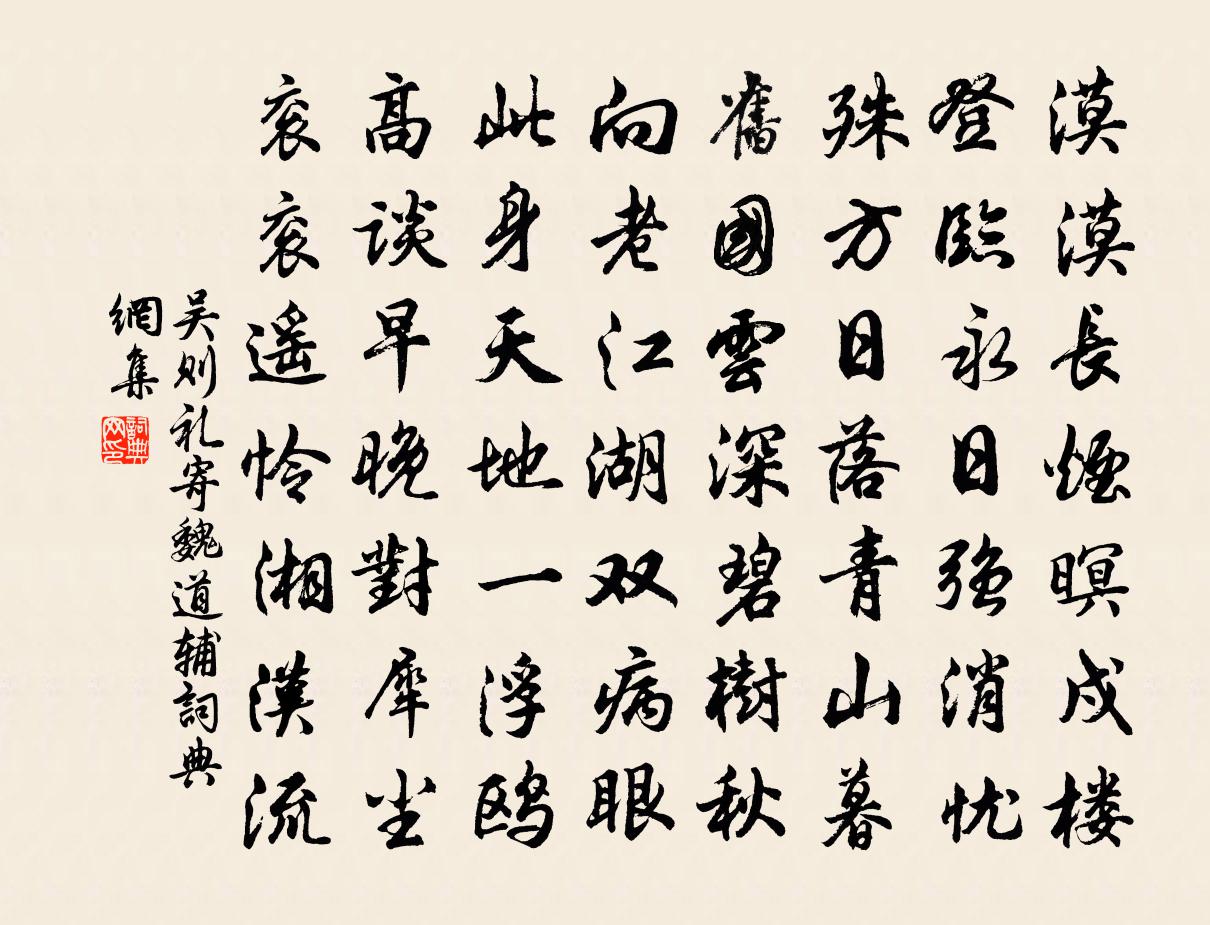 漠漠長煙暝戍楼
登臨永日强消忧
殊方日落青山暮
舊國雲深碧樹秋
向老江湖双病眼
此身天地一浮鸥
高談早晚對犀尘
衮衮遥怜湘漢流
吴则礼寄魏道辅詞典
網集
詞典网印